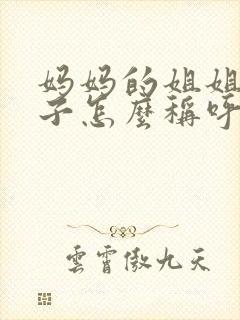 妈妈的姐姐
子怎麼稱呼
雲霄傲九天